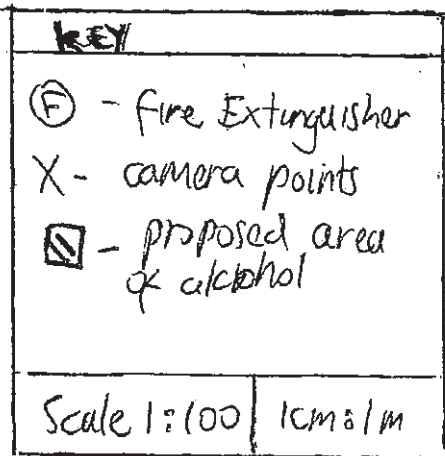 KEY
F - fire Extinguisher
X - camera points
- proposed area
of alcohol
Scale 1:100 1cm:1m